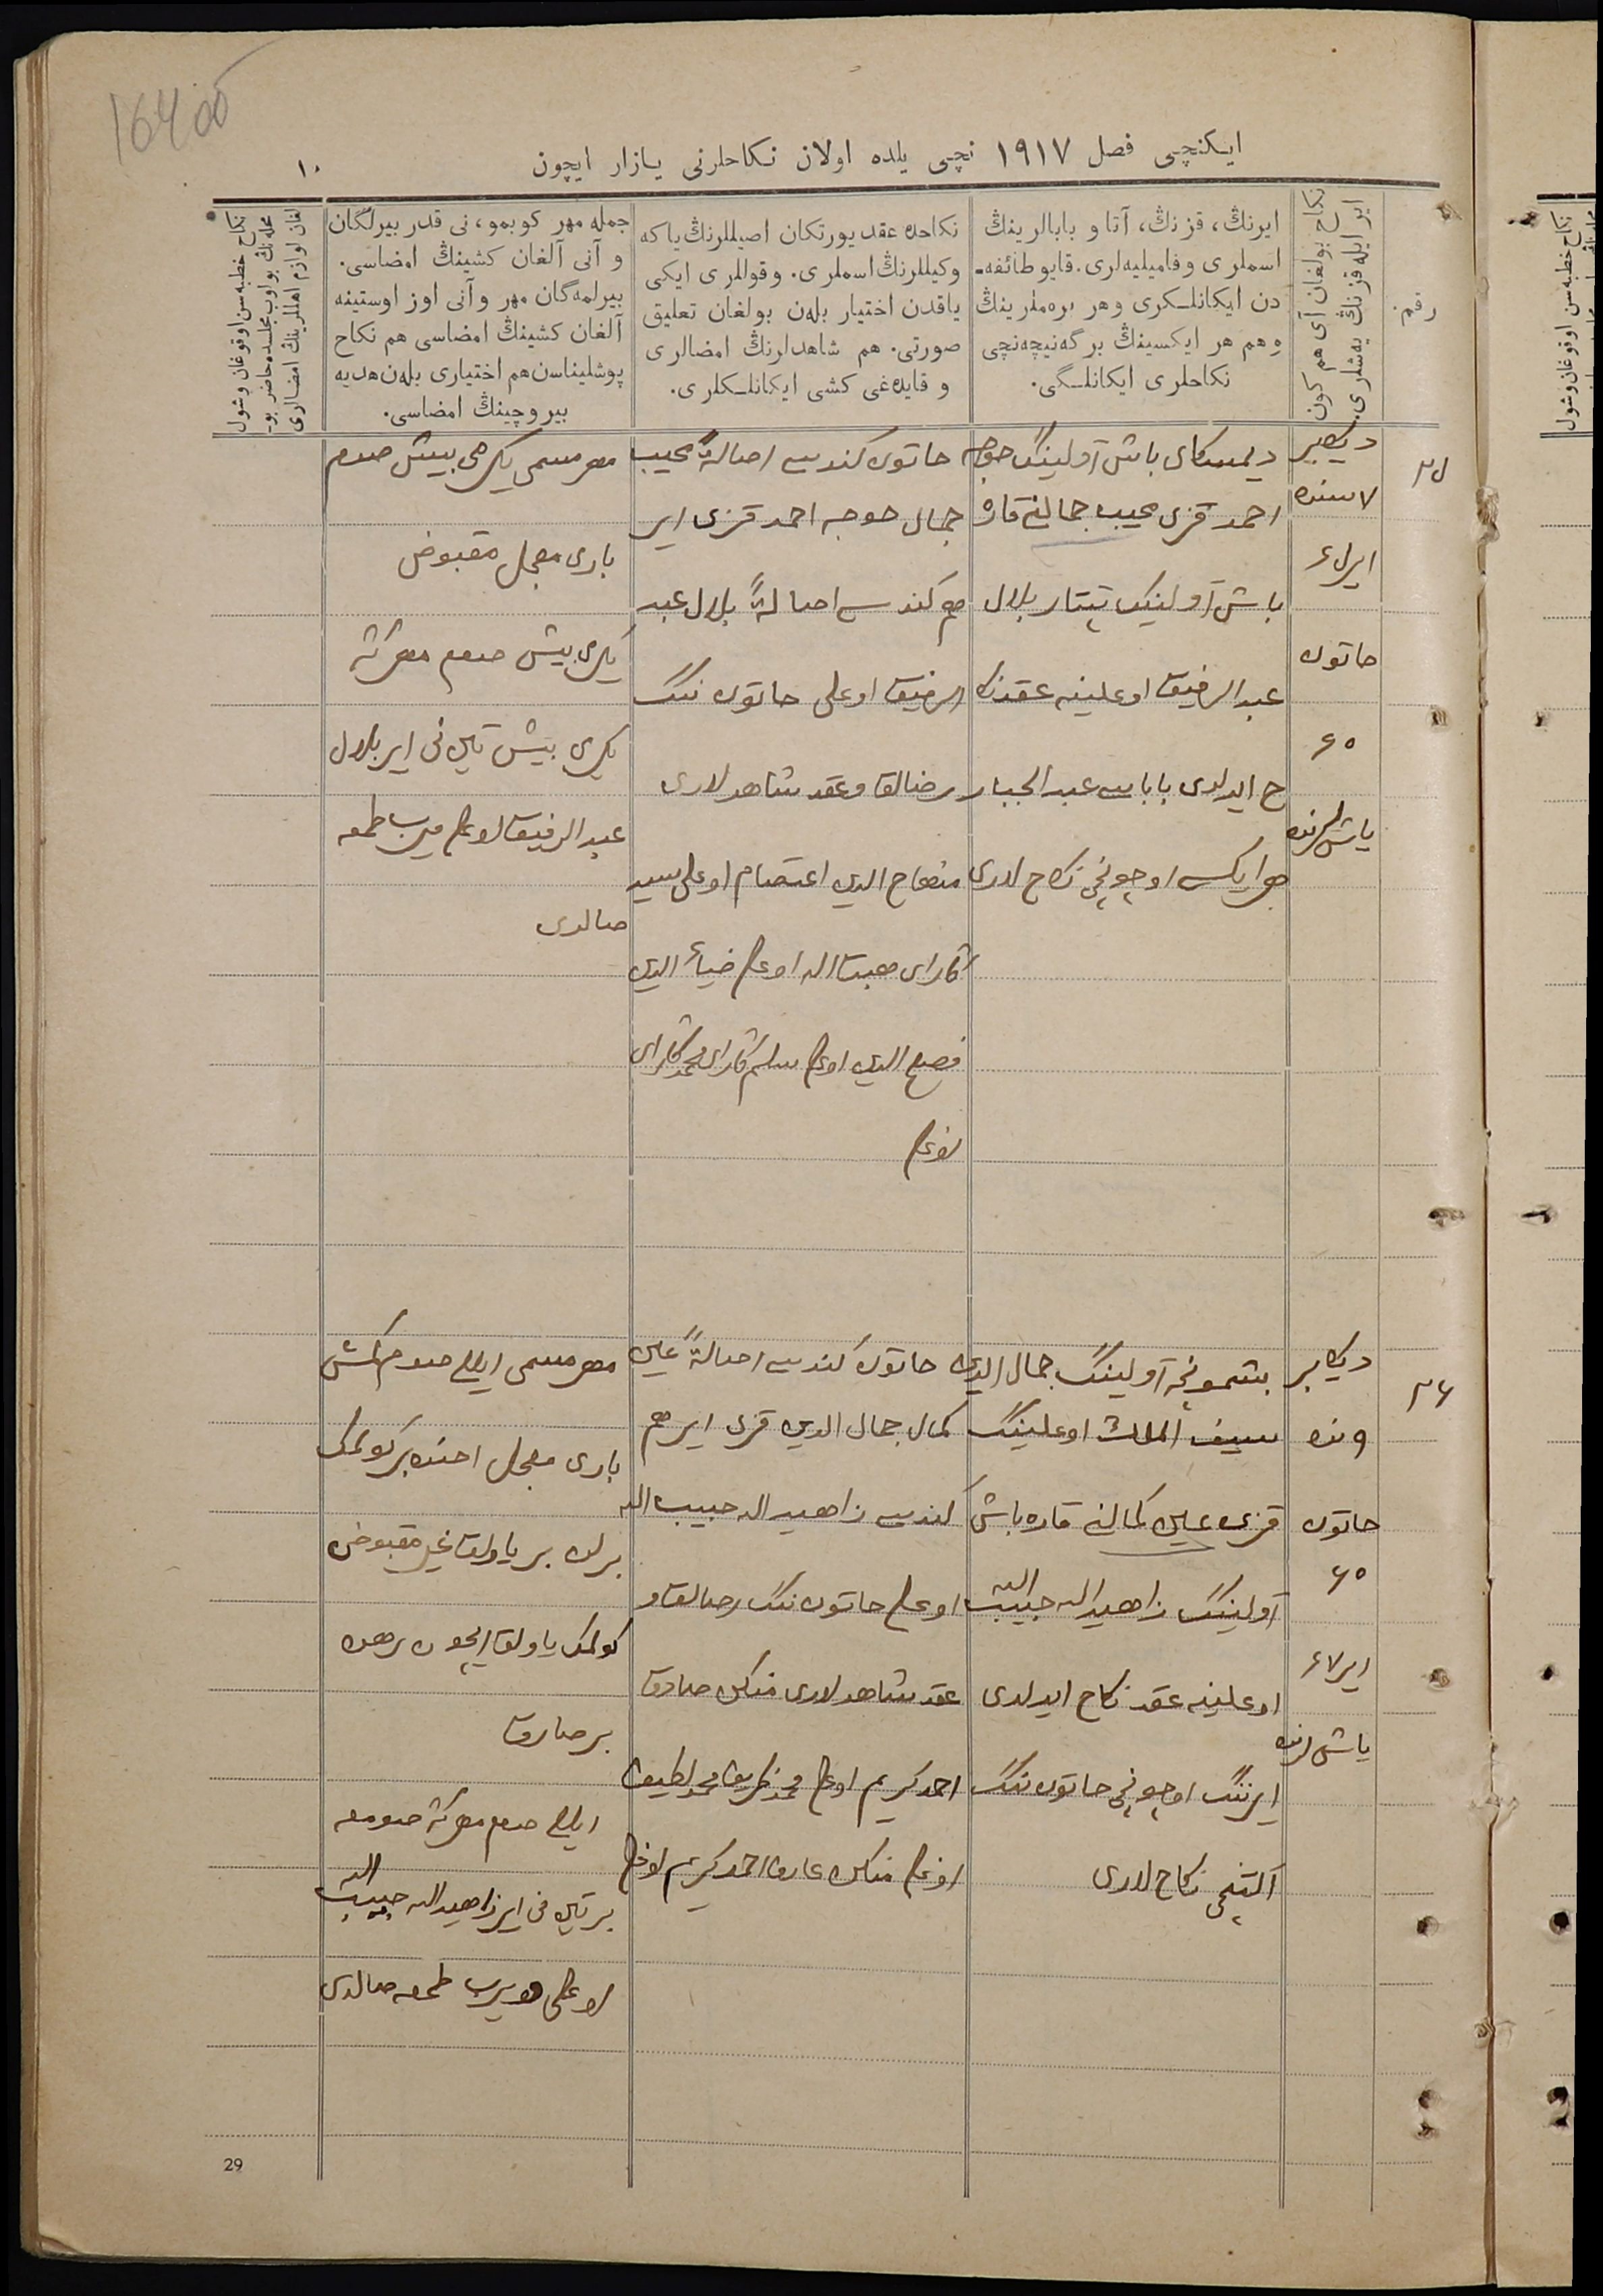 16400
ایكنچی فصل ١٩١٧ نچی یلده اولان نكاحلرنی یازار ایچون
١٠
رقم
نكاح بولغان آی هم كون
ایر ایله قزنڭ یه‌شلری.
ایرنڭ، قزنڭ، آتا و بابالرینڭ
اسملری و فامیلیه‌لری. قایو طائفه‌ـ
دن ایكانلـكری وهر بره‌ملرینڭ
وهم هر ایكسینڭ برگه‌نیچه‌نچی
نكاحلری ایكانلـگی.
نكاحده عقد یورتكان اصیللرنڭ یا كه
وكیللرنڭ اسملری. وقوللری ایكی
یاقدن اختیار بله‌ن بولغان تعلیق
صورتی. هم شاهدلرنڭ امضالری
و قایده‌غی كشی ایكانلـكلری.
جمله مهر كوبمو، نی قدر بیرلگان
و آنی آلغان كشینڭ امضاسی.
بیرلمه‌گان مهر و آنی اوز اوستینه
آلغان كشینڭ امضاسی هم نكاح
پوشلیناسن هم اختیاری بله‌ن هدیه
بیروچینڭ امضاسی.
نكاح خطبه‌سن اوقوغان وشول
محله‌نڭ بولوب مجلسده حاضر بوـ
لغان لوازم اهللرینڭ امضالری
٢٥
دیكابر
٧ سنده
ایر ٤
خاتون
٤٥
یاش لرنده
باش آولینڭ خوجه
احمد قزی محیب جمالنی قاره
باش آولینڭ تپتار بلال
عبد الرفیق اوغلینه عقد نكا
ح ایدلدی باباسی عبد الجبار
هر ایكسی اوچونچی نكاح لاری
خاتون كندسی اصالةً محیب
جمال خوجه احمد قزی ایر
هم كندسی اصالةً بلال عبد
الرفیق اوغلی خاتون ننڭ
رضالقی و عقد شاهدلاری
منهاج الدین اعتصام اوغلی سید
كارای هبت الله اوغلی ضیاء الدین
فصیح الدین اوغلی سلیم كارای محمد كارای
اوغلی
مهر مسمی یكرمی بیش صوم
باری معجل مقبوض
یكرمی بیش صوم مهر گه
یكرمی بیش تین نی ایر بلال
عبد الرفیق اوغلی بیروب طمغه
صالدی
٢٦
دیكابر
٩ نده
خاتون
٤٥
ایر ٤٧
یاش لرنده
آولینڭ جمال الدین
سیف الملك اوغلینڭ
قزی عین كمالنی قاره باش
آولینڭ زاهید الله حبیب الله
اوغلینه عقد نكاح ایدلدی
ایرننڭ اوچونچی خاتون ننڭ
آلتنچی نكاح لاری
خاتون كندسی اصالةً عین
كمال جمال الدین قزی ایر هم
كندسی زاهید الله حبیب الله
اوغلی خاتون ننڭ رضالقی و
عقد شاهدلاری منكلی صادق
احمد كریم اوغلی محمد ظریف محمد لطیف
اوغلی منكلی عارف احمد كریم اوغلی
مهر مسمی ایللی صوم كمش
باری معجل احنده بر كولمك
برلن بر یاولق غیر مقبوض
كولمك یاولق ایچون رهن
بر صارق
ایللی صوم مهر گه صومغه
بر تین نی ایر زاهید الله حبیب الله
اوغلی بیروب طمغه صالدی
29